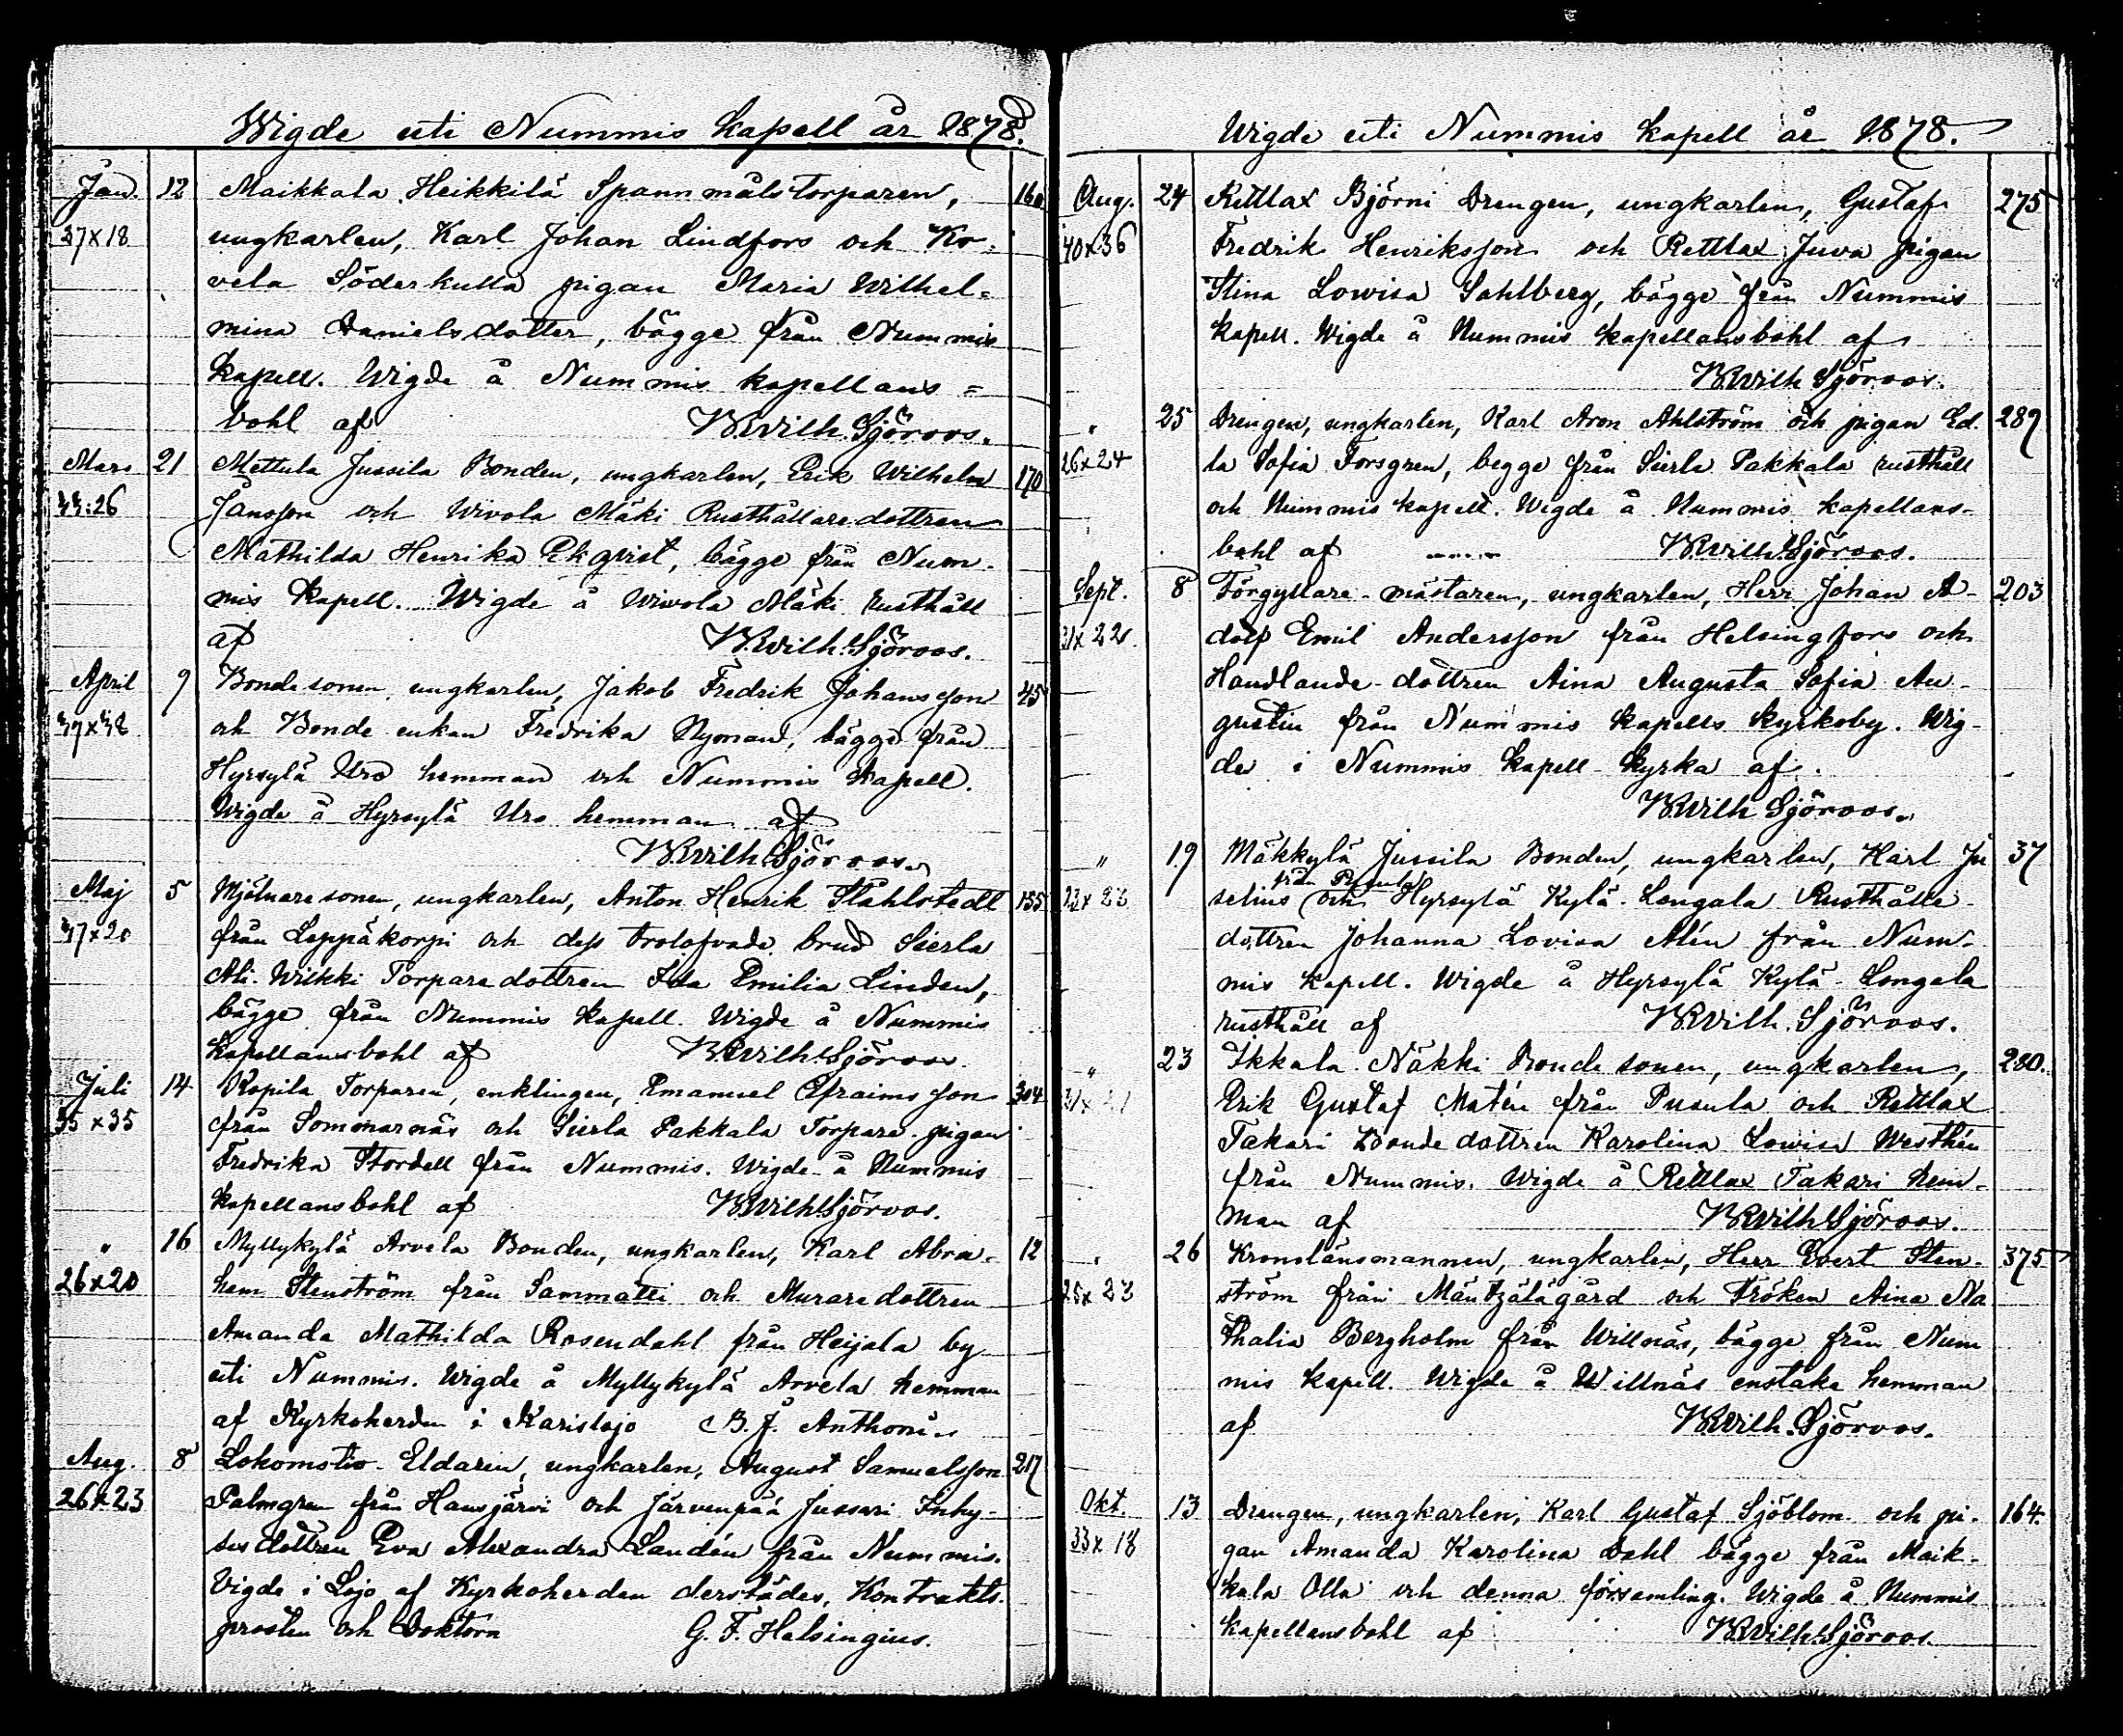 Wigde uti Nummis kapell år 1878.
Jan. 12 Maikkala Heikkilä Spannmålstorparen, 160
27x18 ungkarlen, Karl Johan Lindfors och Ko-
vela Söderkulla pigan Maria Wilhel=
mina Danielsdotter, bägge från Nummis
kapell. Wigde å Nummis kapellans=
bohl af KWilh. Sjöroos.
Mars 21 Mettula Jussila Bonden, ungkarlen, Erik Wilhelm 170
:26 Jansson och Wivola Mäki Rusthållaredottren
Mathilda Henrika Ekqvist, bägge från Num-
mis kapell. Wigde å Wiwola Mäki rusthåll
af KWilh. Sjöroos.
April 9 Bondesonen, ungkarlen, Jakob Fredrik Johansson 45
37x38 och Bonde enkan Fredrika Nyman, bägge från
Hyrsylä Uro hemman och Nummis kapell.
Wigde å Hyrsylä Uro hemman af
KWilh. Sjöroos.
Maj 5 Mjölnaresonen, ungkarlen, Anton Henrik Ståhlstedt 155
37x20 från Leppäkorpi och dess trolofvade brud Sierla
Ali-Wilkki Torparedottren Ida Emilia Linden,
bägge från Nummis kapell. Wigde å Nummis
kapellansbohl af KWilh. Sjöroos.
Juli 14 Kopila Torparen, enklingen, Emanuel Efraimsson 304
35x35 från Sommarnäs och Sierla Pakkala Torpare-pigan
Fredrika Stordell från Nummis. Wigde å Nummis
kapellansbohl af KWilh. Sjöroos.
" 16 Myllykylä Arvela Bonden, ungkarlen, Karl Abra- 12
26x20 ham Stenström från Sammatti och Muraredottren
Amanda Mathilda Rosendahl från Heijala by
uti Nummis. Wigde å Myllykylä Arvela hemman
af Kyrkoherden i Karislojo B. J. Anthoni.
Aug. 8 Lokomotiv-Eldaren, ungkarlen, August Samuelsson 217
26x23 Palmgren från Hausjärvi och Järvenpää Jussari Inhy-
sesdottren Eva Alexandra Landén från Nummis.
Vigde i Lojo af Kyrkoherden derstädes, Kontrakts-
prosten och Doktorn G. F. Helsingius.
Wigde uti Nummis kapell år 1878.
Aug. 24 Rettlax Björni Drengen, ungkarlen, Gustaf 275
40x36 Fredrik Henriksson och Rettlax Juva pigan
Stina Lowisa Sahlberg, bägge från Nummis
kapell. Wigde å Nummis kapellansbohl af
KWilh Sjöroos.
" 25 Drengen, ungkarlen, Karl Aron Ahlström och pigan Ed- 287
26x24 la Sofia Forsgren, begge från Sierla Pakkala rusthåll
och Nummis kapell. Wigde å Nummis kapellans-
bohl af KWilh. Sjöroos.
Sept. 8 Förgyllare-mästaren, ungkarlen, Herr Johan A- 203
31x22 dolf Emil Andersson från Helsingfors och
Handlande-dottren Aina Augusta Sofia Au-
gustin från Nummis kapells kyrkoby. Wig-
de i Nummis kapell-kyrka af
KWilh Sjöroos.
" 19 Mäkkylä Jussila Bonden, ungkarlen, Karl Ju 37
från Pusula
23x23 selius och Hyrsylä Kylä-Longala Rusthålls-
dottren Johanna Lovisa Alén från Num-
mis kapell. Wigde å Hyrsylä Kylä-Longala
rusthåll af KWilh. Sjöroos.
" 23 Ikkala Näkki Bondesonen, ungkarlen, 280.
Erik Gustaf Matén från Pusula och Rettlax
Takari Bondedottren Karolina Lowisa Westhén
från Nummis. Wigde å Rettlax Takari hem-
man af KWilh Sjöroos.
" 26 Kronolänsmannen, ungkarlen, Herr Evert Sten- 375
25x23 ström från Mäntzäläгård och Fröken Aina Na
thalia Bergholm från Willnäs, bägge från Num
mis kapell. Wigde å Willnäs enstaka hemman
af KWilh. Sjöroos.
Okt. 13 Drengen, ungkarlen, Karl Gustaf Sjöblom och pi- 164.
33x18 gan Amanda Karolina Dahl bägge från Maik-
kala Olla och denna församling. Wigde å Nummis
kapellansbohl af KWilh. Sjöroos.